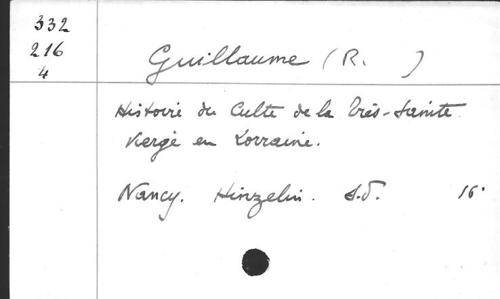 332
216
4
Guillaume (R. )
Histoire du Culte de la Très-Sainte
Vierge en Lorraine.
Nancy. Hinzelin. S.d. 16°